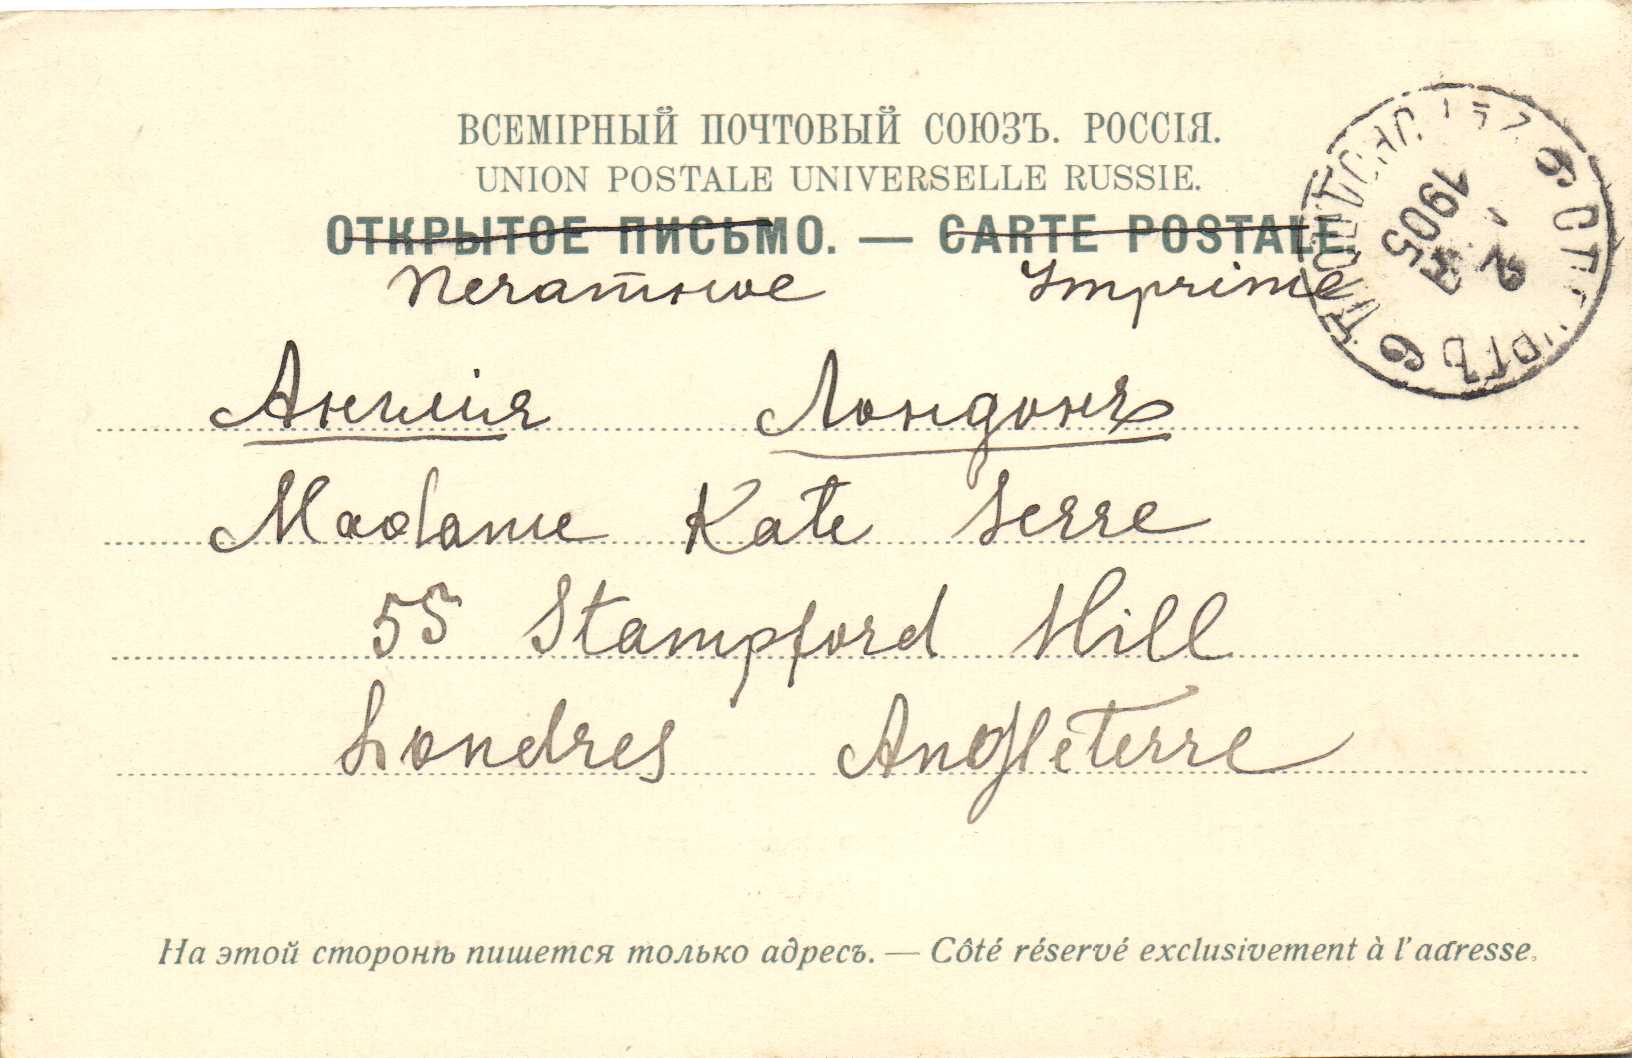 ВСЕМІРНЫЙ ПОЧТОВЫЙ СОЮЗЪ. РОССІЯ.
UNION POSTALE UNIVERSELLE RUSSIE.
ОТКРЫТОЕ ПИСЬМО. — CARTE POSTALE.
Печатное Imprimé
Англія Лондонъ
Madame Kate Serre
55 Stampford Hill
Londres Angleterre
На этой сторонѣ пишется только адресъ. — Côté réservé exclusivement à l'adresse.
1905